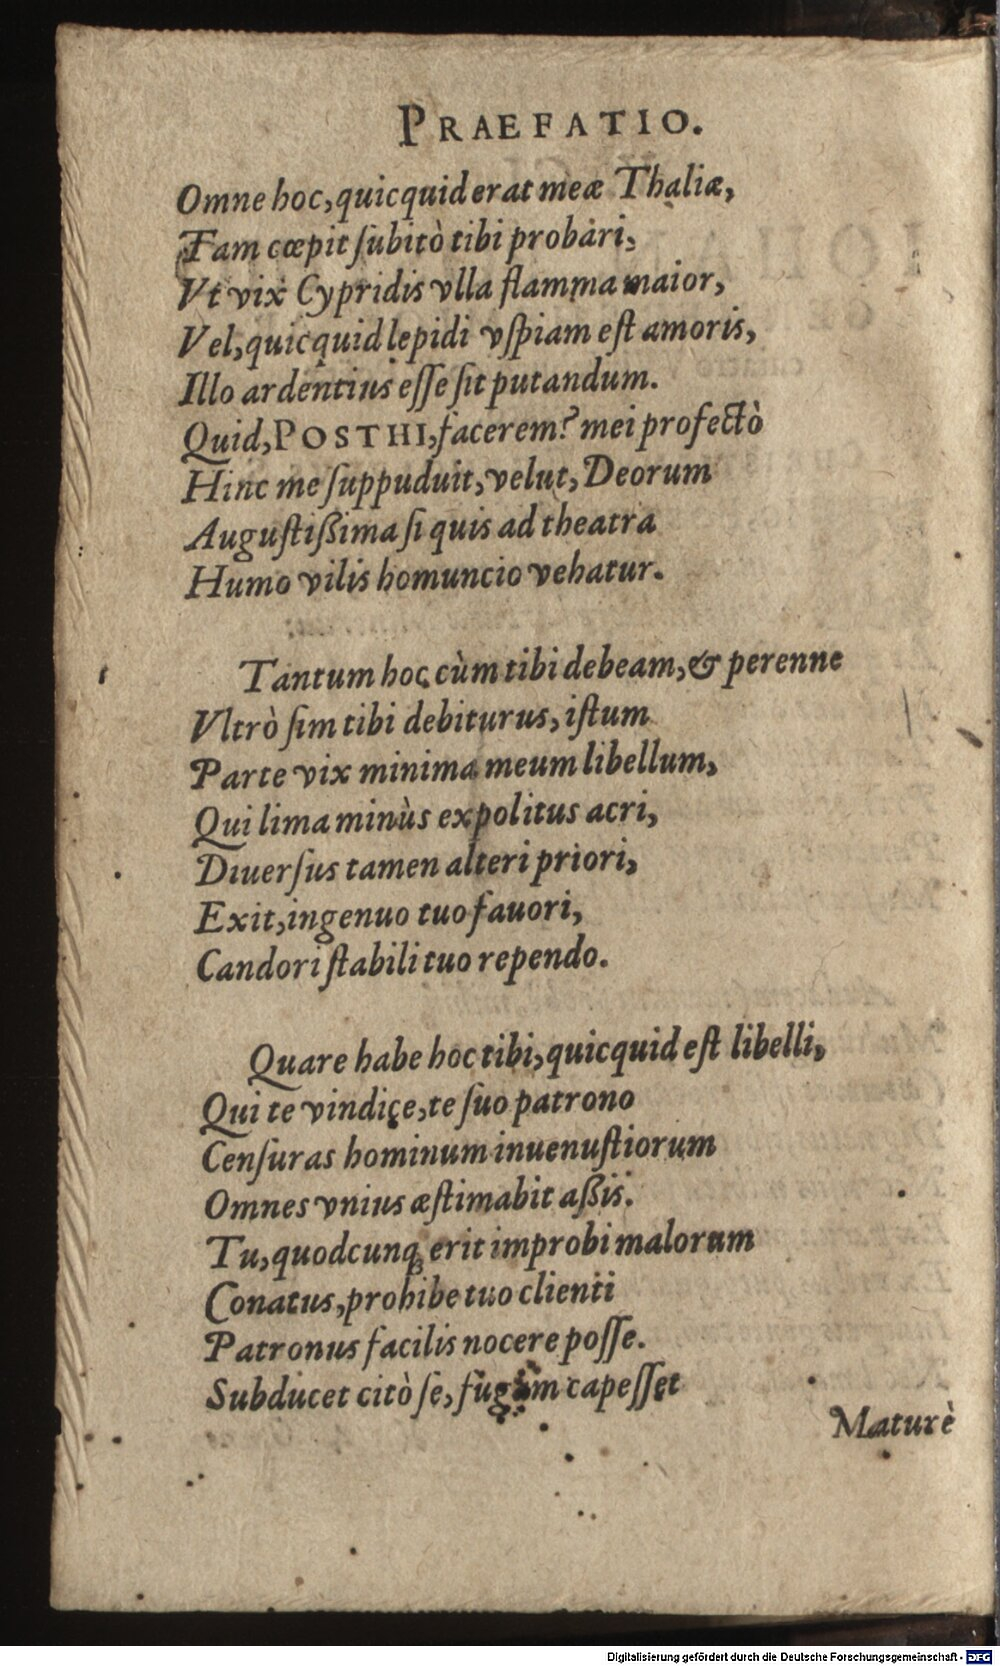 PRAEFATIO.
Omne hoc, quicquid erat meæ Thaliæ,
Tam cœpit ſubitò tibi probari,
Vt vix Cypridis vlla flamma maior,
Vel, quicquid lepidi vſpiam eſt amoris,
Illo ardentius eſſe ſit putandum.
Quid, POSTHI, facerem? mei profectò
Hinc me ſuppuduit, velut, Deorum
Auguſtißima ſi quis ad theatra
Humo vilis homuncio vehatur.
Tantum hoc cùm tibi debeam, & perenne
Vltrò ſim tibi debiturus, iſtum
Parte vix minima meum libellum,
Qui lima minùs expolitus acri,
Diuerſus tamen alteri priori,
Exit, ingenuo tuo fauori,
Candori ſtabili tuo rependo.
Quare habe hoc tibi, quicquid eſt libelli,
Qui te vindice, te ſuo patrono
Cenſuras hominum inuenuſtiorum
Omnes vnius æſtimabit aßis.
Tu, quodcunq; erit improbi malorum
Conatus, prohibe tuo clienti
Patronus facilis nocere poſſe.
Subducet citò ſe, fugam capeſſet
Maturè
Digitalisierung gefördert durch die Deutsche Forschungsgemeinschaft - DFG